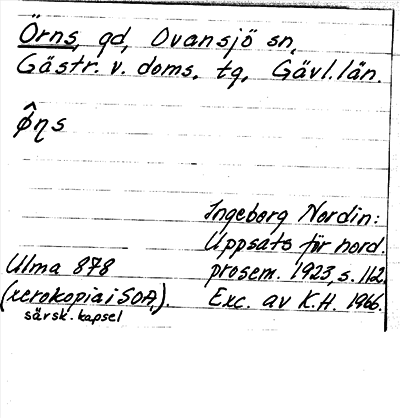 Örns, gd, Ovansjö sn,
Gästr. v. doms. tg, Gävl. län.
ø̂ηs
Ingeborg Nordin:
Uppsats för nord.
prosem. 1923, s. 112.
Exc. av K.H. 1966.
Ulma 878
(xerokopia i SOA,).
särsk. kapsel